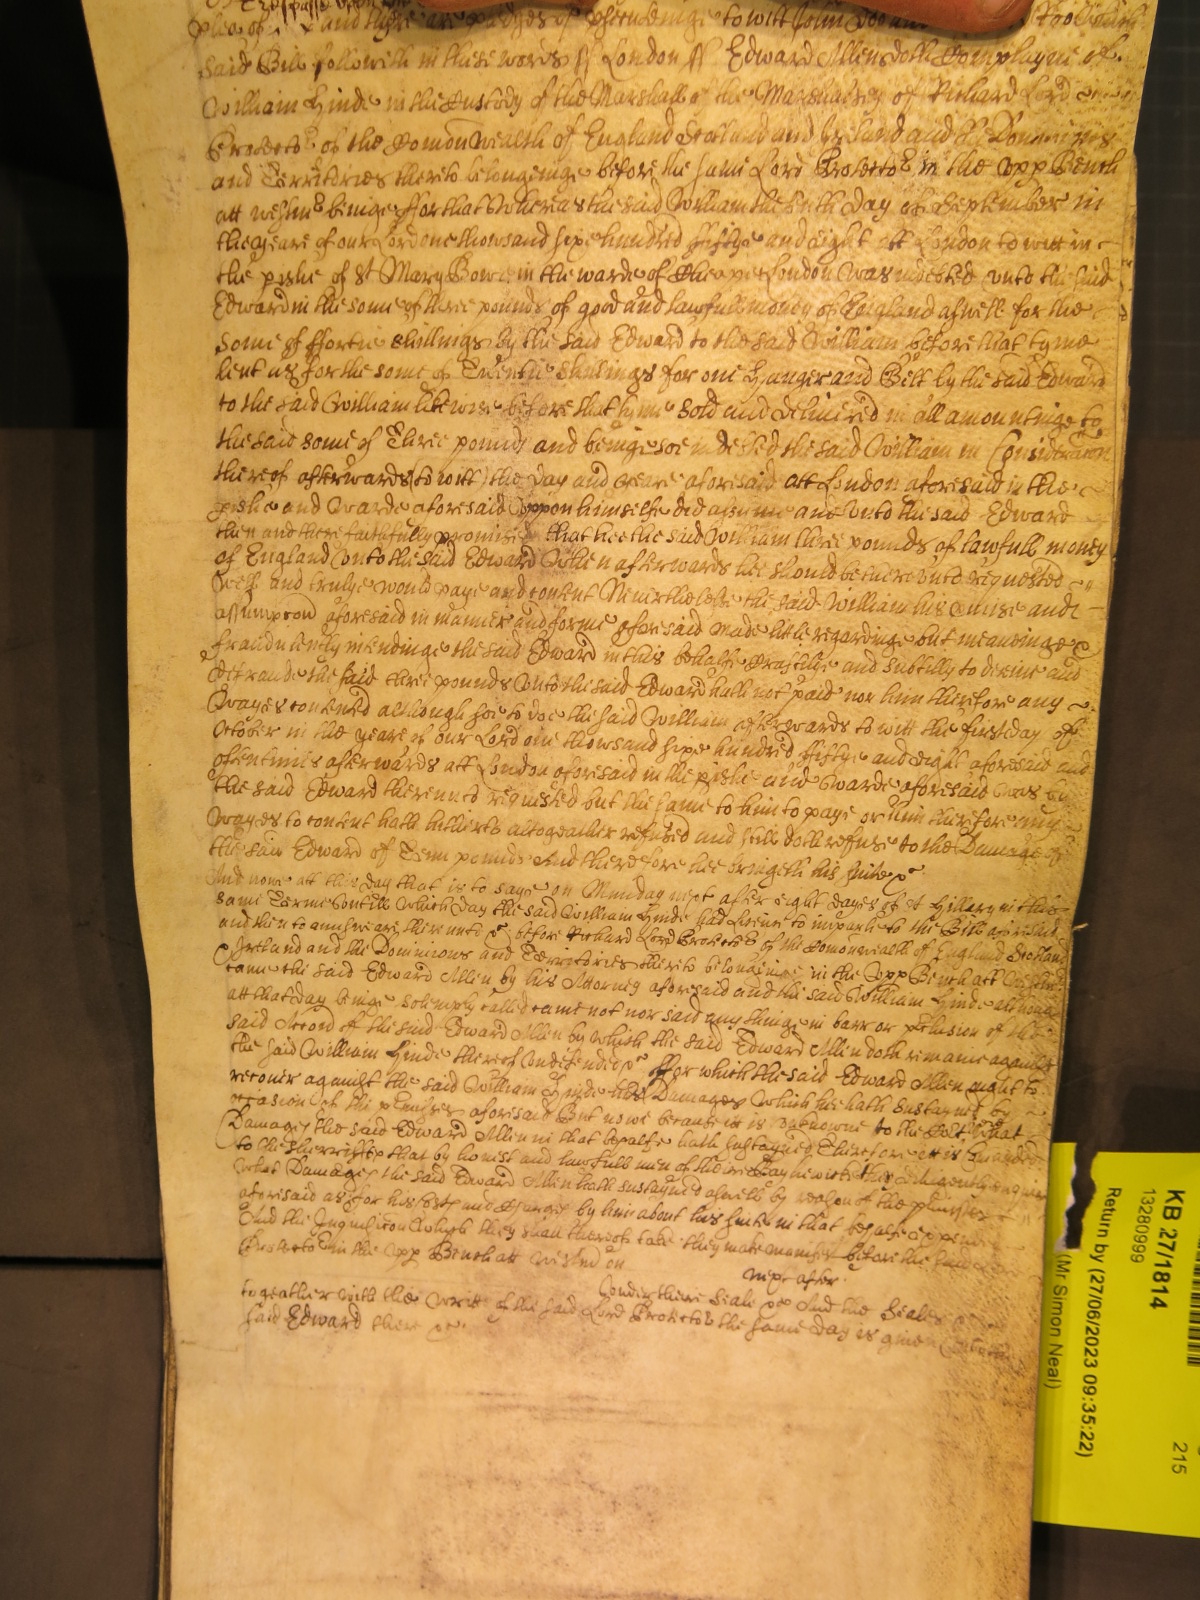 Trespasse upon the
plea of and there are pledges of prosecutinge to witt John Doo and Roo which
said Bill followeth in these words ss London ss Edward Allen doth Complayne of
William Hinde in the Custody of the Marshall of the Marshalsey of Richard Lord
Protector of the Comonwealth of England Scotland and Ireland and the Dominions
and Territories thereto belonginge before the same Lord Protector in the upp Bench
att Westmr beinge ffor that Whereas the said William the tenth day of September in
the yeare of our Lord one thowsand sixe hundred fiftye and eight att London to witt in
the pishe of St Mary Bowe in the warde of Cheape London was indebted unto the said
Edward in the some of three pounds of good and lawfull money of England aswell for the
some of ffortie shillings by the said Edward to the said William before that tyme
lent as for the some of Twentie shillings for one Hanger and Belt by the said Edward
to the said William likewise before that tyme sold and delivered in all amountinge to
the said some of Three pounds and beinge soe indebted the said William in Consideracon
thereof afterwards (to witt) the day and yeare aforesaid att London aforesaid in the
pishe and Warde aforesaid uppon himselfe did assume and unto the said Edward
then and there faithfully promise that hee the said William three pounds of lawfull money
of England unto the said Edward When afterwards hee should be thereunto requested
well and trulye would paye and content Neverthelesse the said William his promise and
assumpcon aforesaid in manner and forme aforesaid made little regardinge but meaninge &
fraudulently intendinge the said Edward in this behalfe craftilie and subtilly to deceive and
defraude the said three pounds unto the said Edward hath not paid nor him therefore any
wayes contented although soe to doe the said William afterwards to witt the first day of
October in the yeare of our Lord one thowsand sixe hundred fiftye and eight aforesaid and
oftentimes afterwards att London aforesaid in the pishe and Warde aforesaid was by
the said Edward thereunto requested but the same to him to paye or him therefore any
wayes to content hath hitherto altogeather refused and still doth refuse to the Damage of
the said Edward of Tenn pounds And therefore hee bringeth his suite &c
And nowe att this day that is to saye on Munday next after eight dayes of St Hillary in this
same Terme Untill which day the said William Hinde had licence to imparle to the Bill aforesaid
and then to answeare thereunto &c before Richard Lord Protector of the Comonwealth of England Scotland
& Ireland and the Dominions and Territories thereto belonginge in the Upp Bench att Westmr
came the said Edward Allen by his Attorney aforesaid and the said William Hinde although
att that day beinge solemply called came not nor said any thinge in barr or preclusion of the
said Accon of the said Edward Allen by which the said Edward Allen doth remaine against
the said William Hinde thereof Undefended &c ffor which the said Edward Allen ought to
recover against the said William Hinde his Damages which hee hath sustained by
occasion of the pmisses aforesaid But nowe because it is unknowne to the Cort What
Damages the said Edward Allen in that behalfe hath sustayned Therefore it is Comanded
to the Sherriffs that by honest and lawfull men of theire Baylewicke they diligently enquire
what Damages the said Edward Allen hath sustayned aswell by reason of the pmisses
aforesaid as for his Costs and Charges by him about his suite in that behalfe expended
And the Inquisicon which they shall thereof take they make manifest before the said Lord
Protector in the Upp Bench att Westmr on
next after
togeather with the Writt of the said Lord Protector Under there Seale &c And the Seales
said Edward there &c the same day is given
KB 27/1814
13280999
Return by (27/06/2023 09:35:22)
(Mr Simon Neal)
215